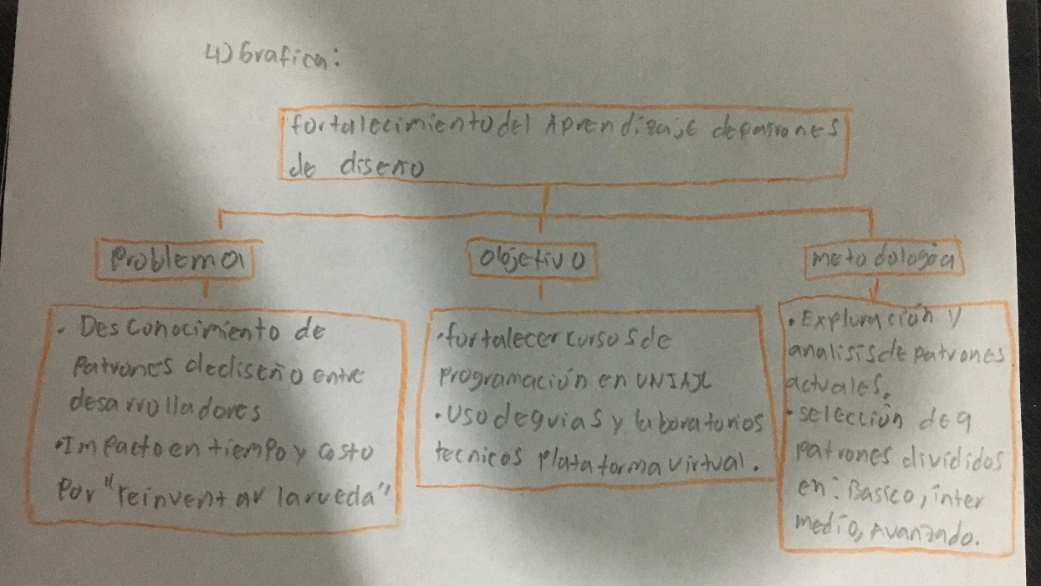 4) Grafica:
fortalecimiento del Aprendizaje de patrones
de diseño
Problema
Objetivo
metodologia
• Desconocimiento de
Patrones de diseño entre
desarrolladores
• Impacto en tiempo y costo
Por "reinventar la rueda"
• fortalecer cursos de
programación en UNIAJC
• Uso de guias y laboratorios
tecnicos plataforma virtual.
• Exploración y
analisis de patrones
actuales.
• selección de 9
patrones divididos
en: Basico, inter
medio, Avanzado.